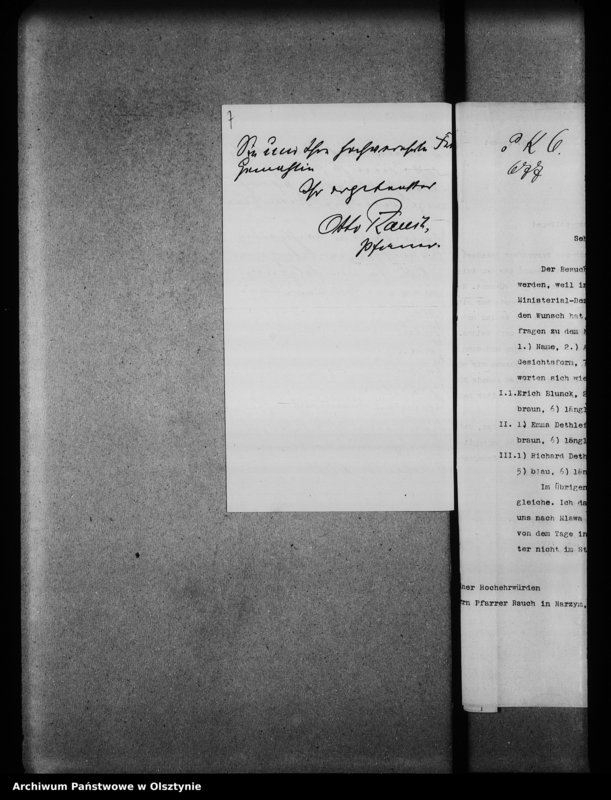 7
Sie und Ihre hochverehrte Frau
Gemahlin
Ihr ergebenster
Otto Rauch,
Pfarrer.
P. K. 6.
Seh
Der Besuch
werden, weil in
Ministerial-De
den Wunsch hat,
fragen zu dem
1.) Name, 2.) A
Gesichtsform, 7
worten sich wie
I.1.Erich Blunck, 2
braun, 6) längl
II. 1) Emma Dethlef
braun, 6) längl
III.1) Richard Deth
5) blau, 6) län
Im Übrigen
gleiche. Ich da
uns nach Mlawa
von dem Tage in
ter nicht im St
ner Hochehrwürden
rn Pfarrer Rauch in Narzym,
Archiwum Państwowe w Olsztynie